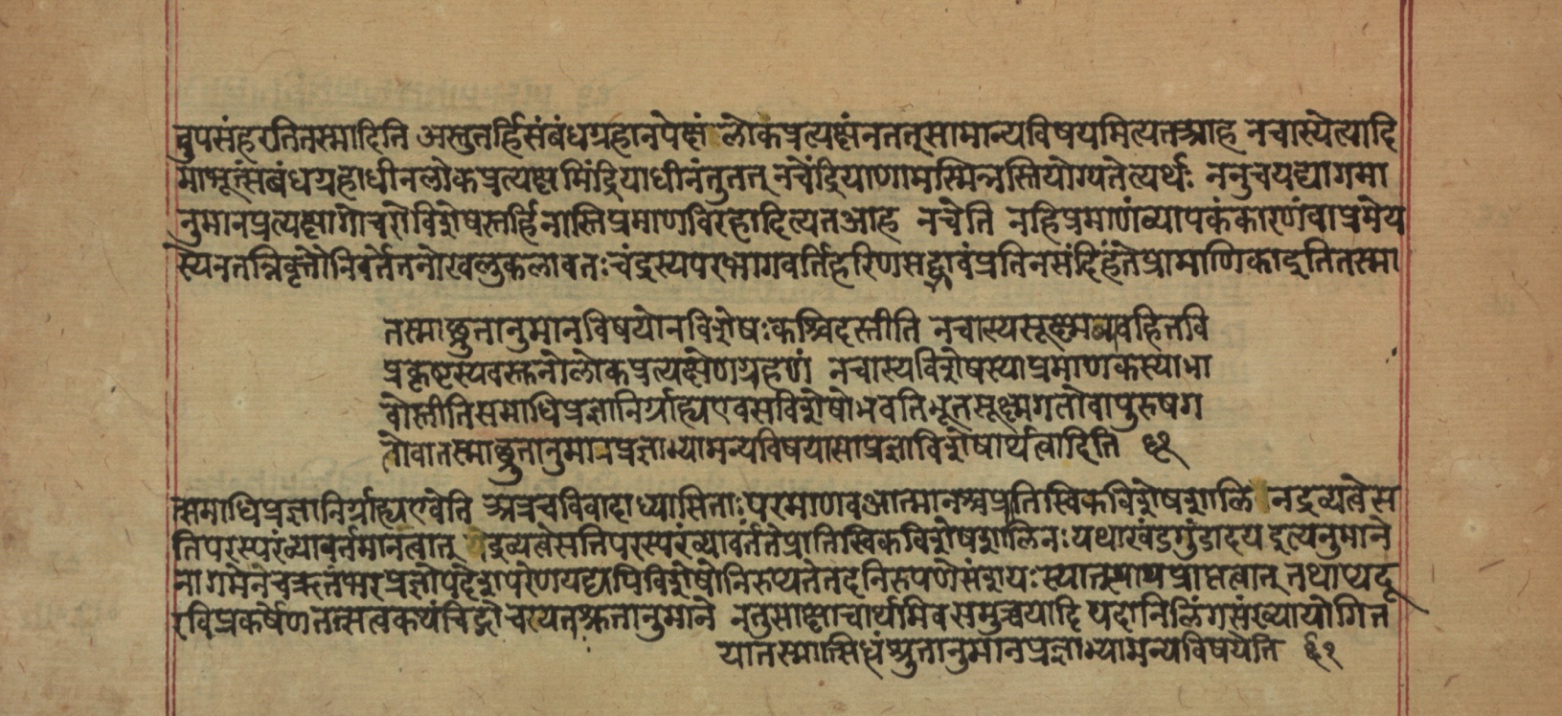 वुपसंहरतितस्मादिति अस्तुतर्हिसंबंधग्रहानपेक्षं लोकप्रत्यक्षंनतत्सामान्यविषयमित्यतआह नचास्येत्यादि
माभूत्संबंधग्रहाधीनलोकप्रत्यक्षमिंद्रियाधीनंतुतत् नचेंद्रियाणामस्मिन्नस्तियोग्यतेत्यर्थः ननुचयद्यागमा
नुमानप्रत्यक्षागोचरोविशेषस्तर्हिनास्तिप्रमाणविरहादित्यतआह नचेति नहिप्रमाणंव्यापकंकारणंवाप्रमेय
स्यैनतन्निवृत्तौनिवर्तेतनोखलुकलावतःचंद्रस्यपरभागवर्तिहरिणसद्भावंप्रतिनसंदिहंतेप्रामाणिकाइतितस्मा
तस्माछ्रुतानुमानविषयोनविशेषःकश्चिदस्तीति नचास्यसूक्ष्मव्यवहितवि
प्रकृष्टस्यवस्तुनोलोकप्रत्यक्षेणग्रहणं नचास्यविशेषस्याप्रमाणकस्याभा
वोस्तीतिसमाधिप्रज्ञानिर्ग्राह्यएवसविशेषोभवतिभूतसूक्ष्मगतोवापुरुषग
तोवातस्माछ्रुतानुमानप्रज्ञाभ्यामन्यविषयासाप्रज्ञाविशेषार्थत्वादिति ४९
त्समाधिप्रज्ञानिर्ग्राह्यएवेति अत्रचविवादाध्यासिताःपरमाणवआत्मानश्चप्रातिस्विकविशेषशालि नद्रव्यत्वेस
तिपरस्परंव्यावर्तमानत्वात् येद्रव्यत्वेसतिपरस्परंव्यावर्तंतेप्रातिस्विकविशेषशालिनःयथाखंडमुंडादयइत्यनुमाने
नागमेनचऋतंभरप्रज्ञोपदेशपरेणयद्यपिविशेषोनिरुप्यतेतदनिरुपणेसंशयःस्यात्न्यायप्राप्तत्वात् तथाप्यदू
रविप्रकर्षेणतत्सत्वंकथंचिद्गोचरयतःश्रुतानुमाने नतुसाक्षाच्चार्थमिवसमुच्चयादि पदानिलिंगसंख्यायोगित
यातस्मात्सिद्धंश्रुतानुमानप्रज्ञाभ्यामन्यविषयेति ४९